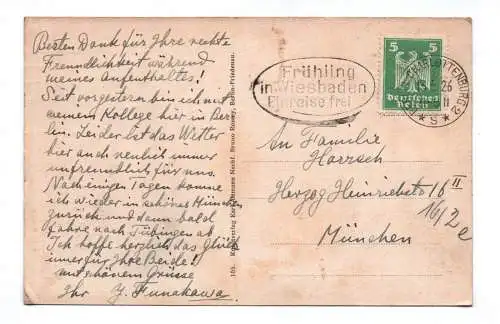 Besten Dank für Ihre rechte
Freundlichkeit während
meines Aufenthaltes!
Seit vorgestern bin ich mit
meinem Kollege hier in Ber-
lin. Leider ist das Wetter
hier auch neulich immer
unfreundlich für uns.
Nach einigen Tagen komme
ich wieder in schönes München
zurück und dann bald
fahre nach Tübingen ab
Ich hoffe herzlich das Glück
immer für Ihre Beide!
mit schönem Grüsse
Ihr Y. Funakawa.
105. Nachf. Bruno Berlin-Friedenau.
Frühling
in Wiesbaden
Einreise frei
5 5
Deutsches
Reich
CHARLOTTENBURG 2
26
* S *
An Familie
Herzog Heinrichstr 16 II
16/2
München